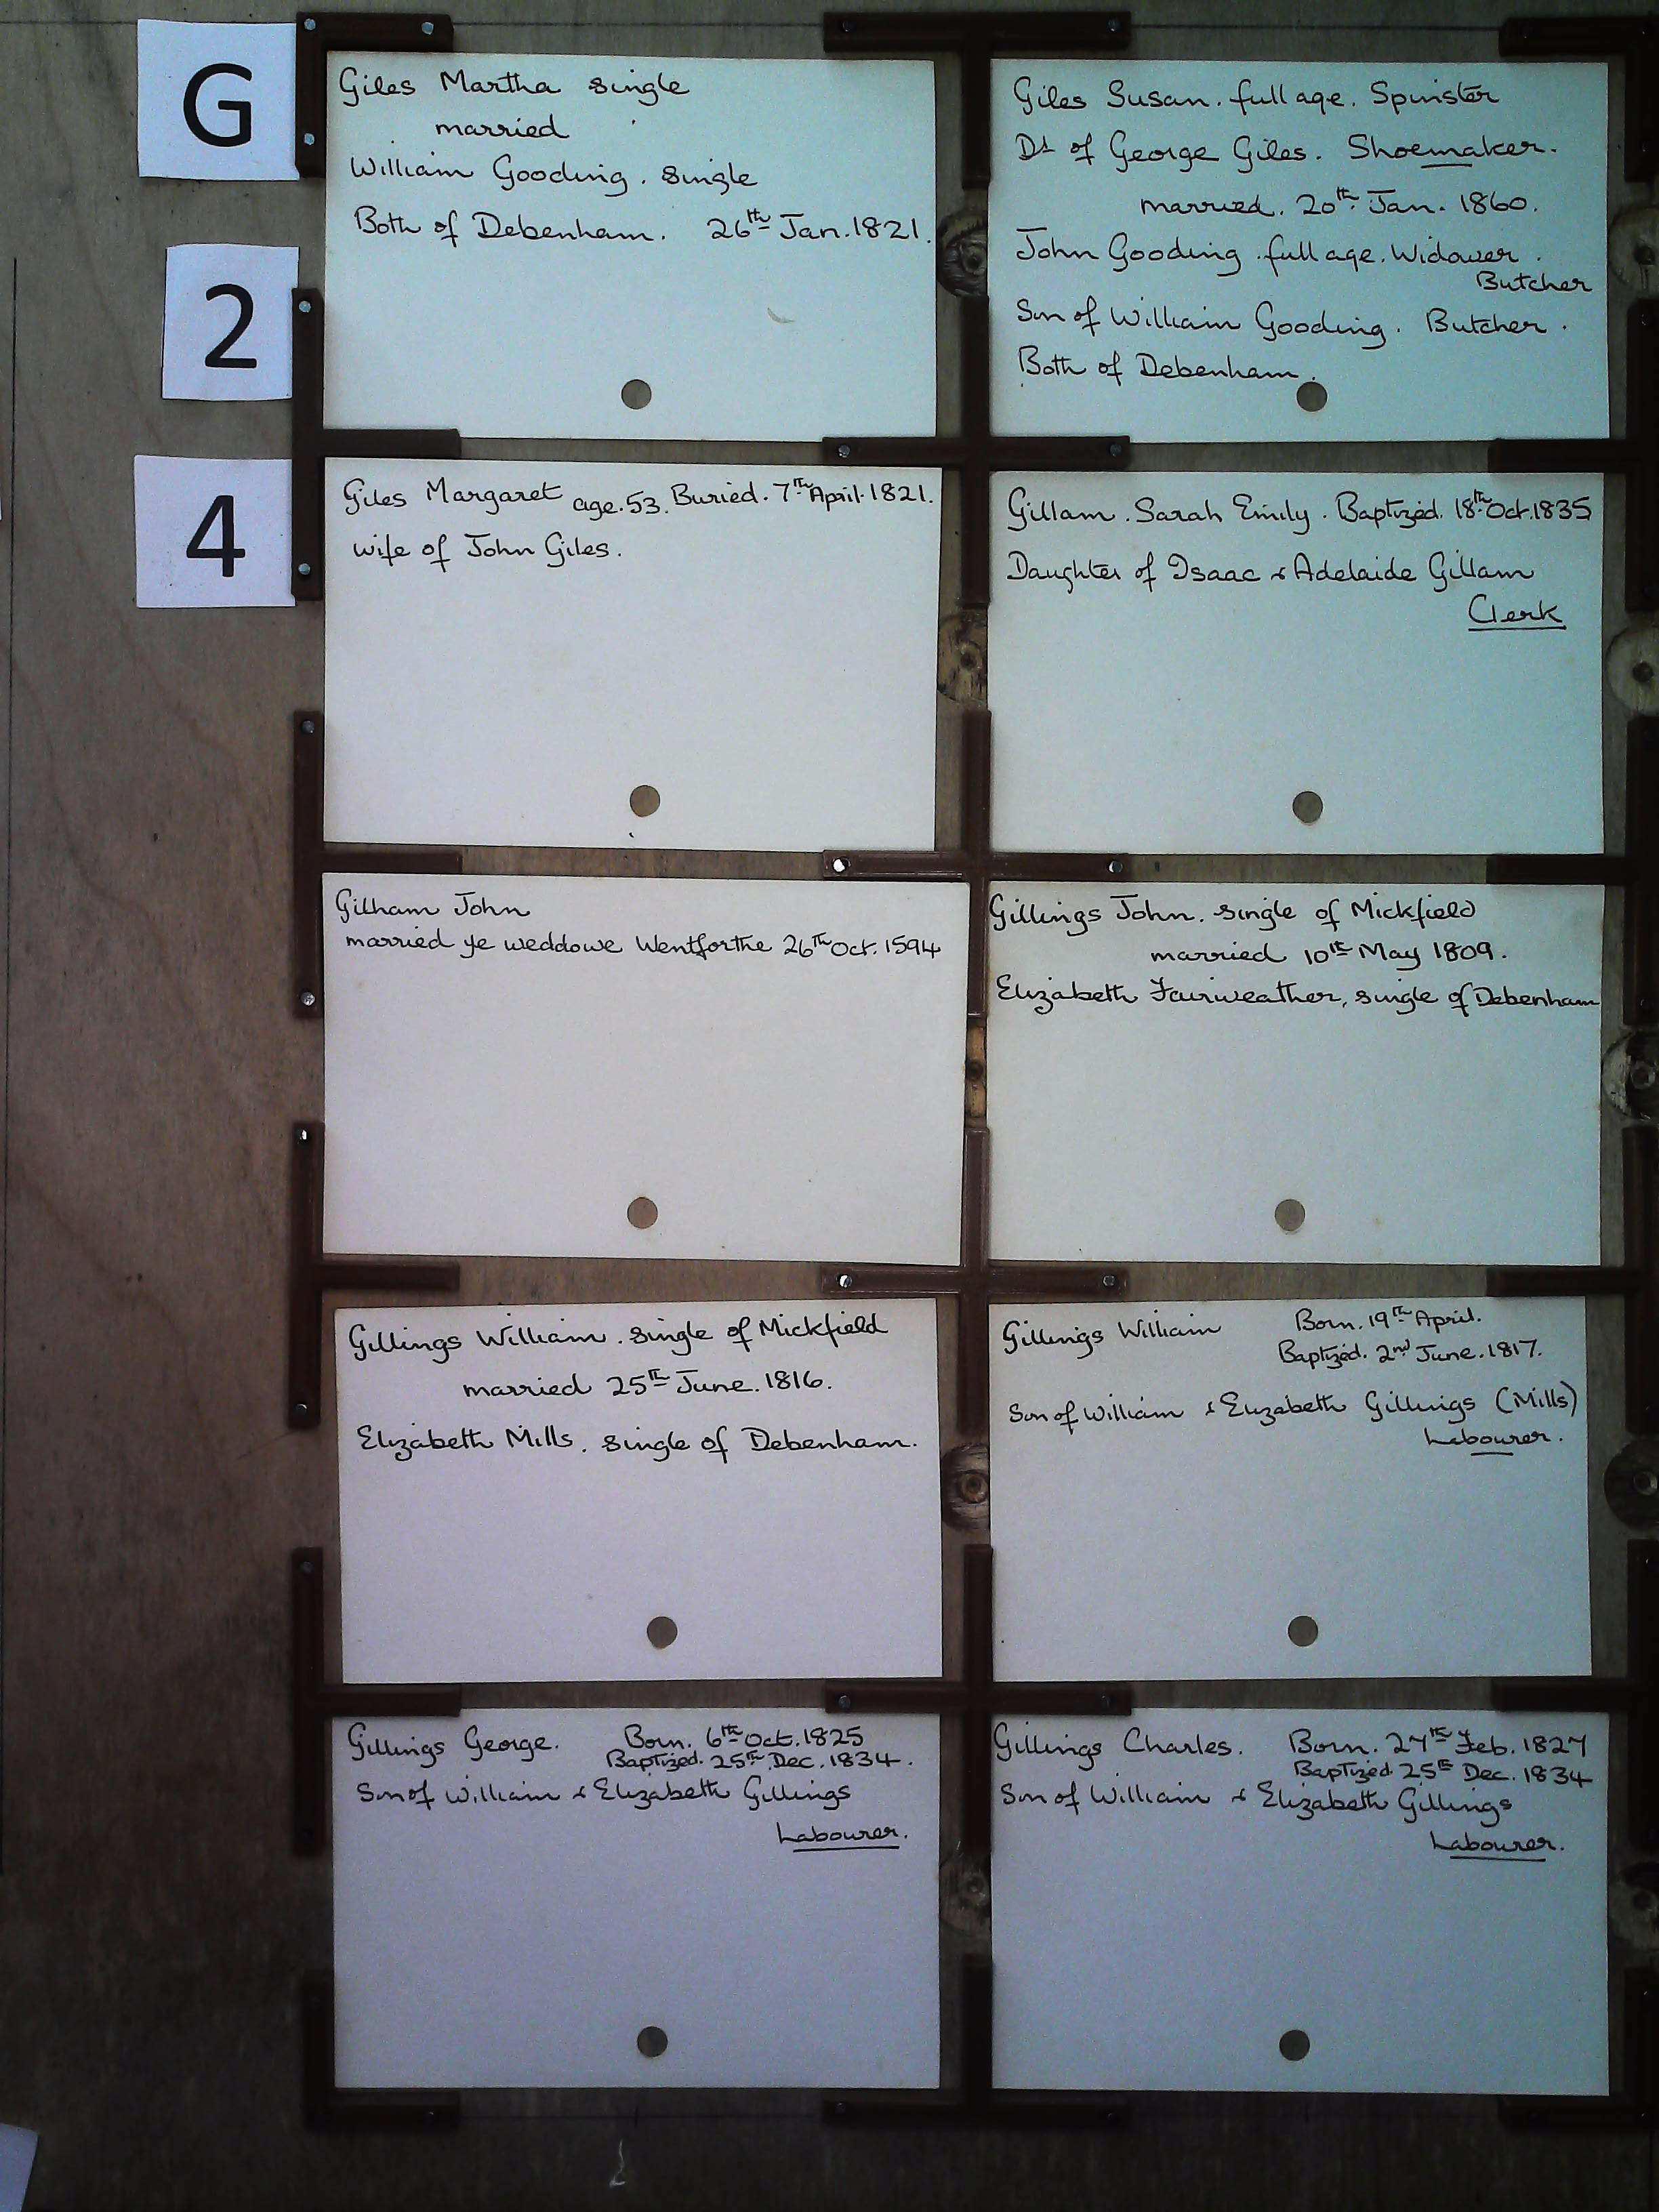 G
2
4
Giles Martha single
married
William Gooding. single
Both of Debenham. 26th Jan. 1821.
Giles Susan. full age. Spinster
Dt of George Giles. Shoemaker.
married. 20th Jan. 1860.
John Gooding. full age. Widower.
Butcher
Son of William Gooding. Butcher.
Both of Debenham.
Giles Margaret age. 53. Buried. 7th April. 1821.
wife of John Giles.
Gillam. Sarah Emily. Baptized. 18th Oct. 1835
Daughter of Isaac & Adelaide Gillam
Clerk
Gilham John
married ye weddowe Wentforthe 26th Oct. 1594
Gillings John. single of Mickfield
married 10th May 1809.
Elizabeth Fairweather, single of Debenham
Gillings William. single of Mickfield
married 25th June. 1816.
Elizabeth Mills. single of Debenham.
Gillings William Born. 19th April.
Baptized. 2nd June. 1817.
Son of William & Elizabeth Gillings (Mills)
Labourer.
Gillings George. Born. 6th Oct. 1825
Baptized. 25th Dec. 1834.
Son of William & Elizabeth Gillings
Labourer.
Gillings Charles. Born. 27th Feb. 1827
Baptized 25th Dec. 1834
Son of William & Elizabeth Gillings
Labourer.